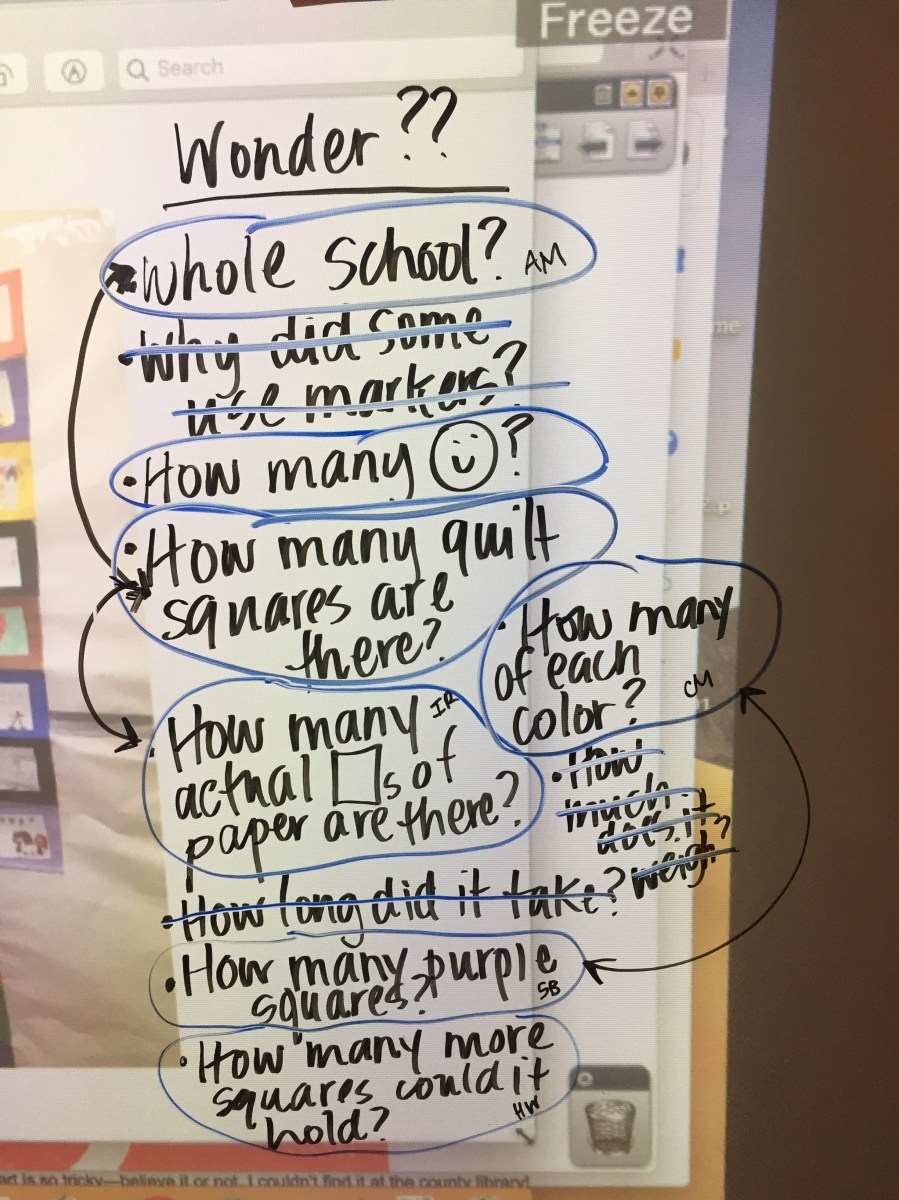 Freeze
Search
Wonder??
• Whole school? AM
• Why did some
use markers?
• How many ☺?
• How many quilt
squares are
there?
• How many
of each
color? CM
• How many IR
actual □s of
paper are there?
• How
much
does it
weigh?
• How long did it take?
• How many purple
squares? SB
• How many more
squares could it
hold? HW
art is so tricky—believe it or not, I couldn't find it at the county library!